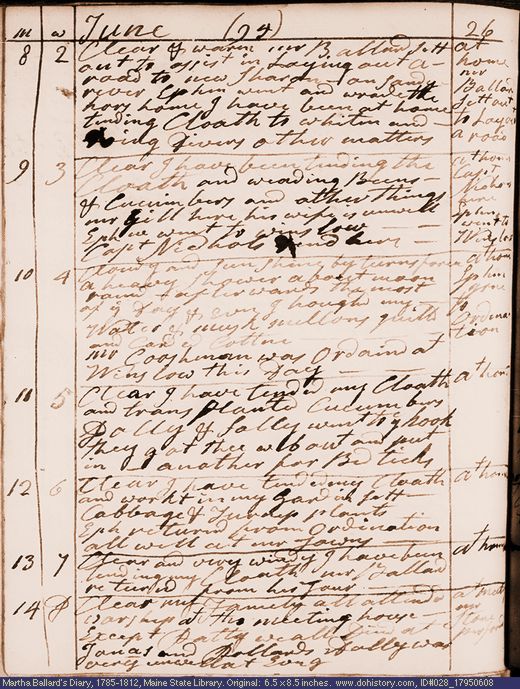 m w June (94) 26
8 2 Clear & warm mr Ballard sett at
out to assist in Laying out a home
road to new Sharon on Sandy mr
river Ephm went and wrode the Ballard
hors home I have been at home sett out
tending Cloath to whiten and to Lay out
doing divers other matters a road
9 3 Clear I have been tending the at home
Cloath and weading Beens Capt
& Cucumbers and other things Nichols
mr Gill here his wife is unwell here
Ephm went to winslow Ephm went to
Capt Nichols dind here Winslow
10 4 Clowdy and sun shine by turns forenoon at home
a heavy shower about noon Ephm
raind afterwards the most gone
of ye Day & Evng I hough my to
Water & musk mellons quilts Ordina
and Carded Cotten tion
mr Cooshman was Ordaind at
Winslow this Day
11 5 Clear I have tended my Cloath at home
and transplanted Cucumbers
Dolly & Sally went to ye hook
they got thee web out and put
in another for Bed ticks
12 6 Clear I have tended my Cloath at home
and workt in my gardin sett
Cabbage & Turnip plants
Ephm returnd from Ordination
all well at mr Towns
13 7 Clear and very windy I have been at home
tending my Cloath mr Ballard
returned from his Tour
14 D Clear my family all attended at meeting
worship at the meeting house mr
Except Patty we all Stone
Jonas and Pollards Patty was
very unwell at Evng
Martha Ballard's Diary, 1785-1812, Maine State Library. Original: 6.5 x 8.5 inches. www.dohistory.com, ID#028_17950608